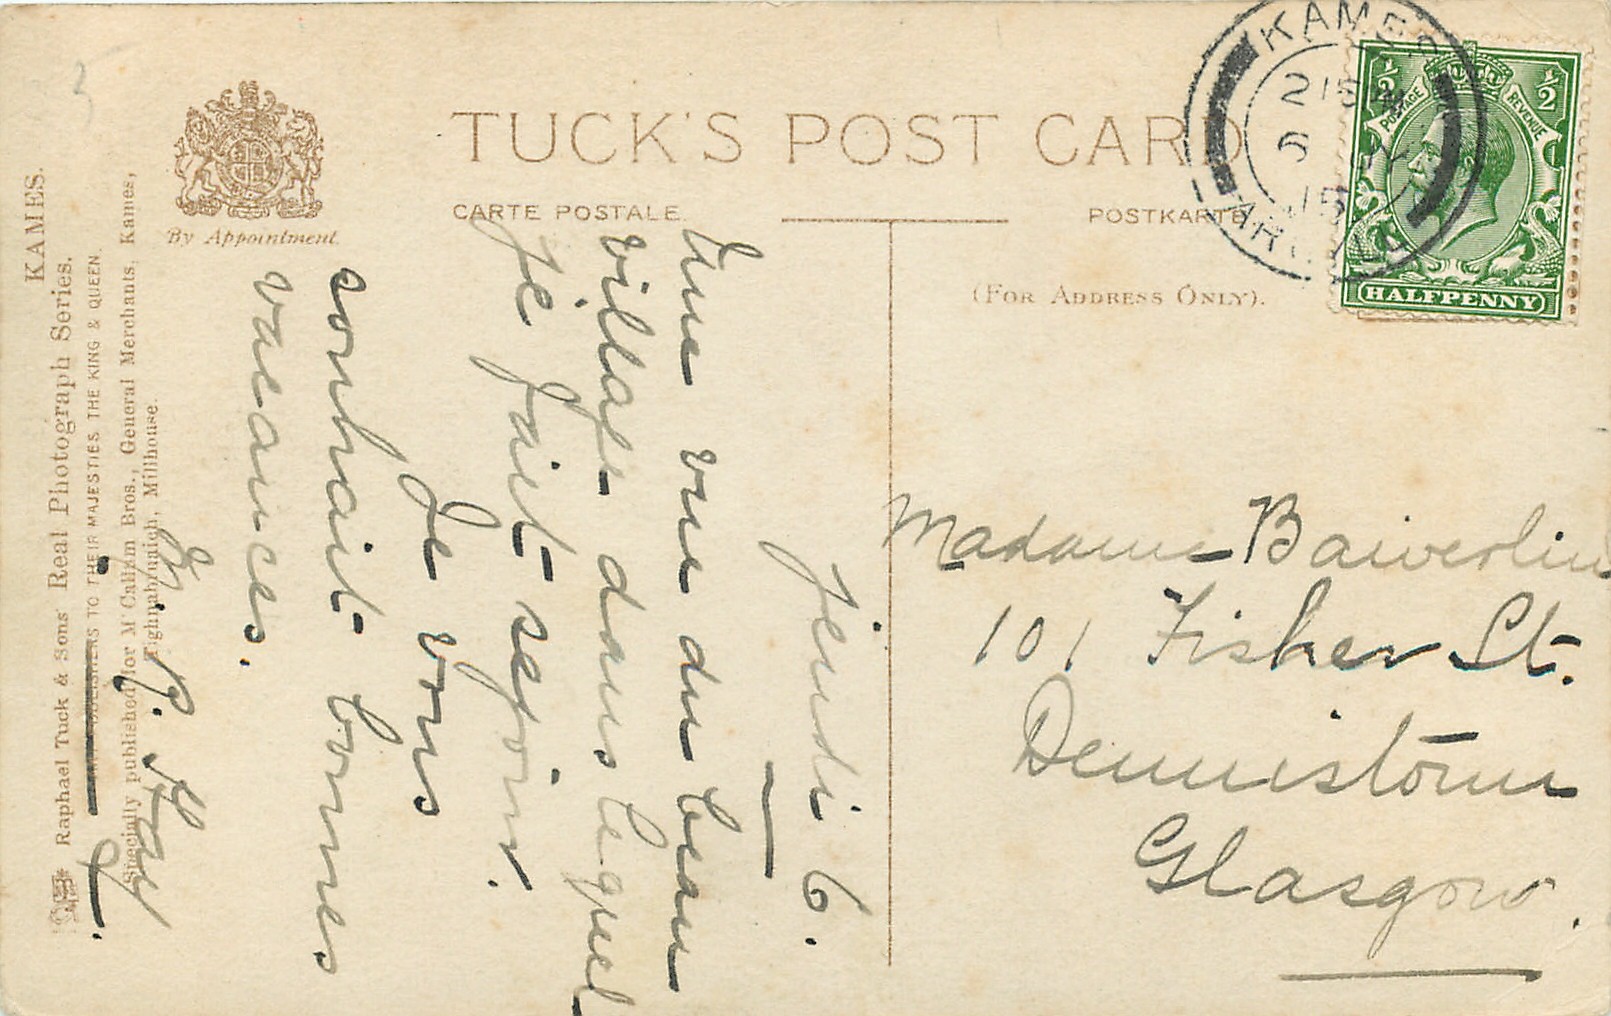 KAMES.
Raphael Tuck & Sons' Real Photograph Series.
TO THEIR MAJESTIES THE KING & QUEEN.
Specially published for M'Callum Bros., General Merchants, Kames,
Tighnabruaich, Millhouse.
By Appointment.
TUCK'S POST CARD
CARTE POSTALE.
POSTKARTE
(FOR ADDRESS ONLY).
KAMES
215
6
15
½ ½
POSTAGE REVENUE
HALFPENNY
Jeudi 6.
Une vue du beau
village dans lequel
je fait sejour.
Je vous
souhait bonnes
vacances.
P. Hay
Madame Baiverlin
101 Fisher St.
Dennistoun
Glasgow.